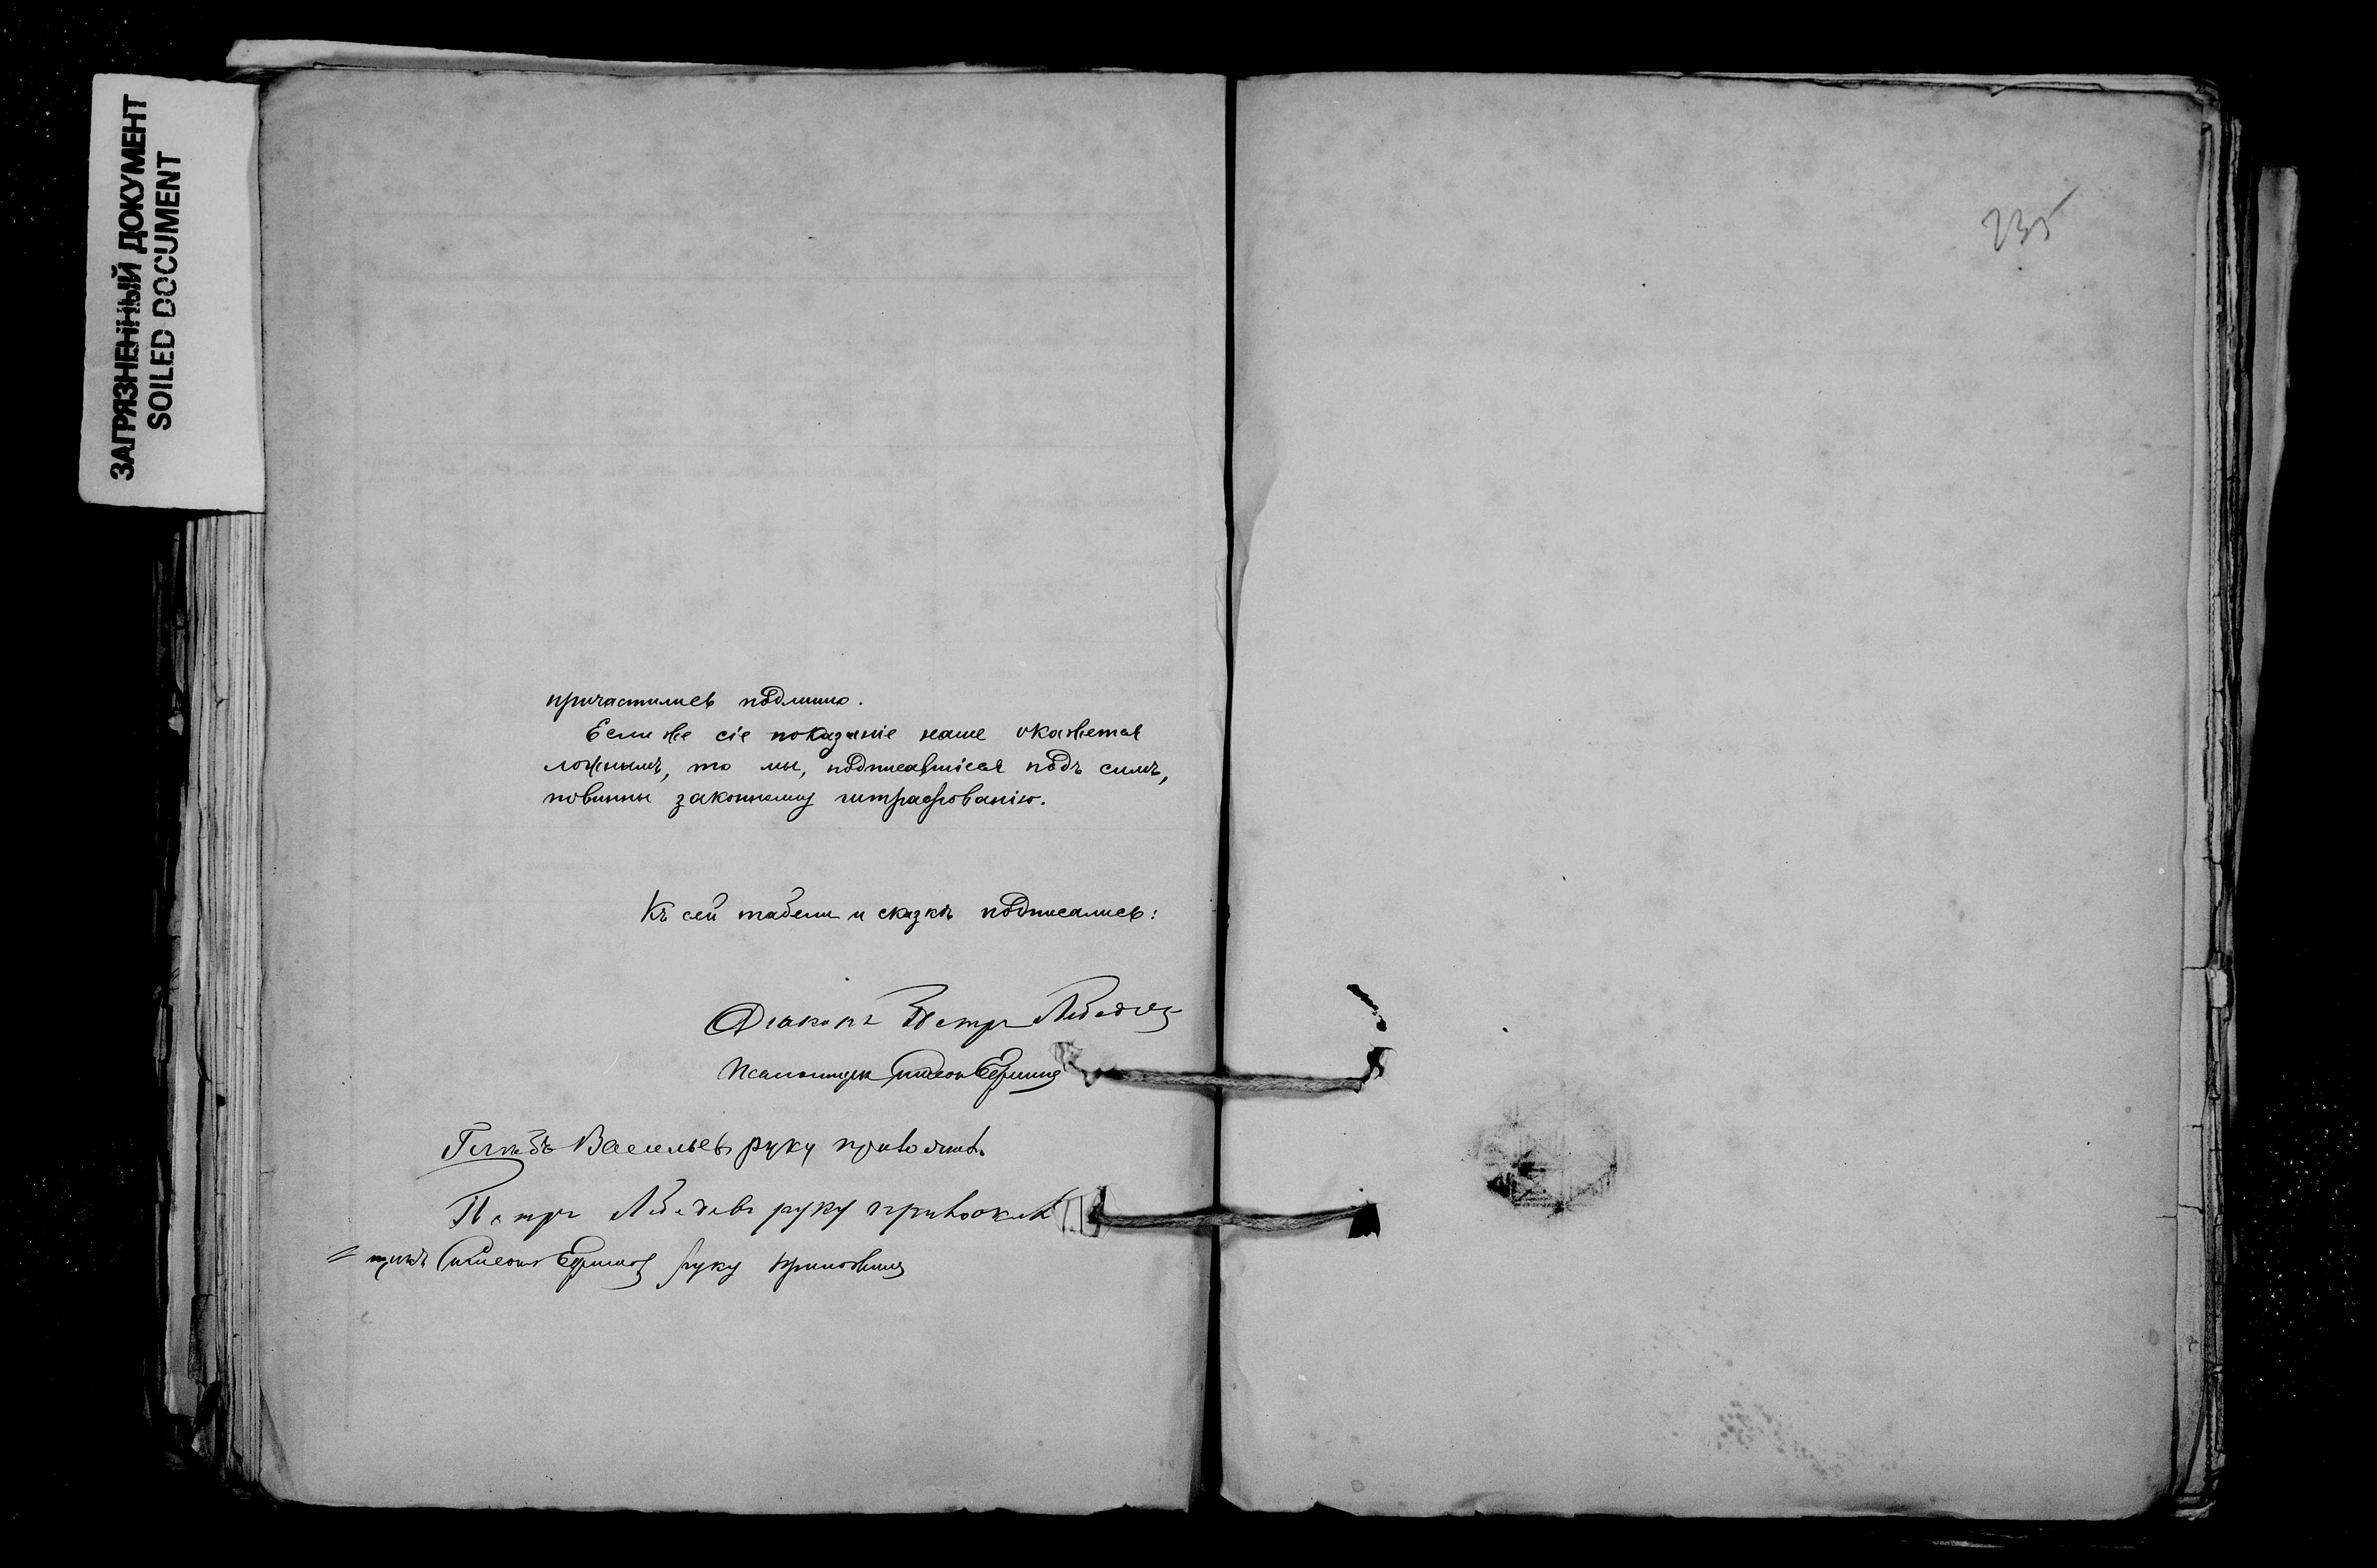 ЗАГРЯЗНЕННЫЙ ДОКУМЕНТ
SOILED DOCUMENT
235
причастились подлинно.
Если же сіе показаніе наше окажется
ложнымъ, то мы, подписавшіеся подъ симъ,
повинны законному штрафованію.
Къ сей табели и сказкѣ подписались:
Діаконъ Петръ
Псаломщик Симеон Ефимов
Глѣбъ Васильевъ руку приложилъ.
Петръ руку приложилъ
Симеонъ Ефимов руку приложилъ